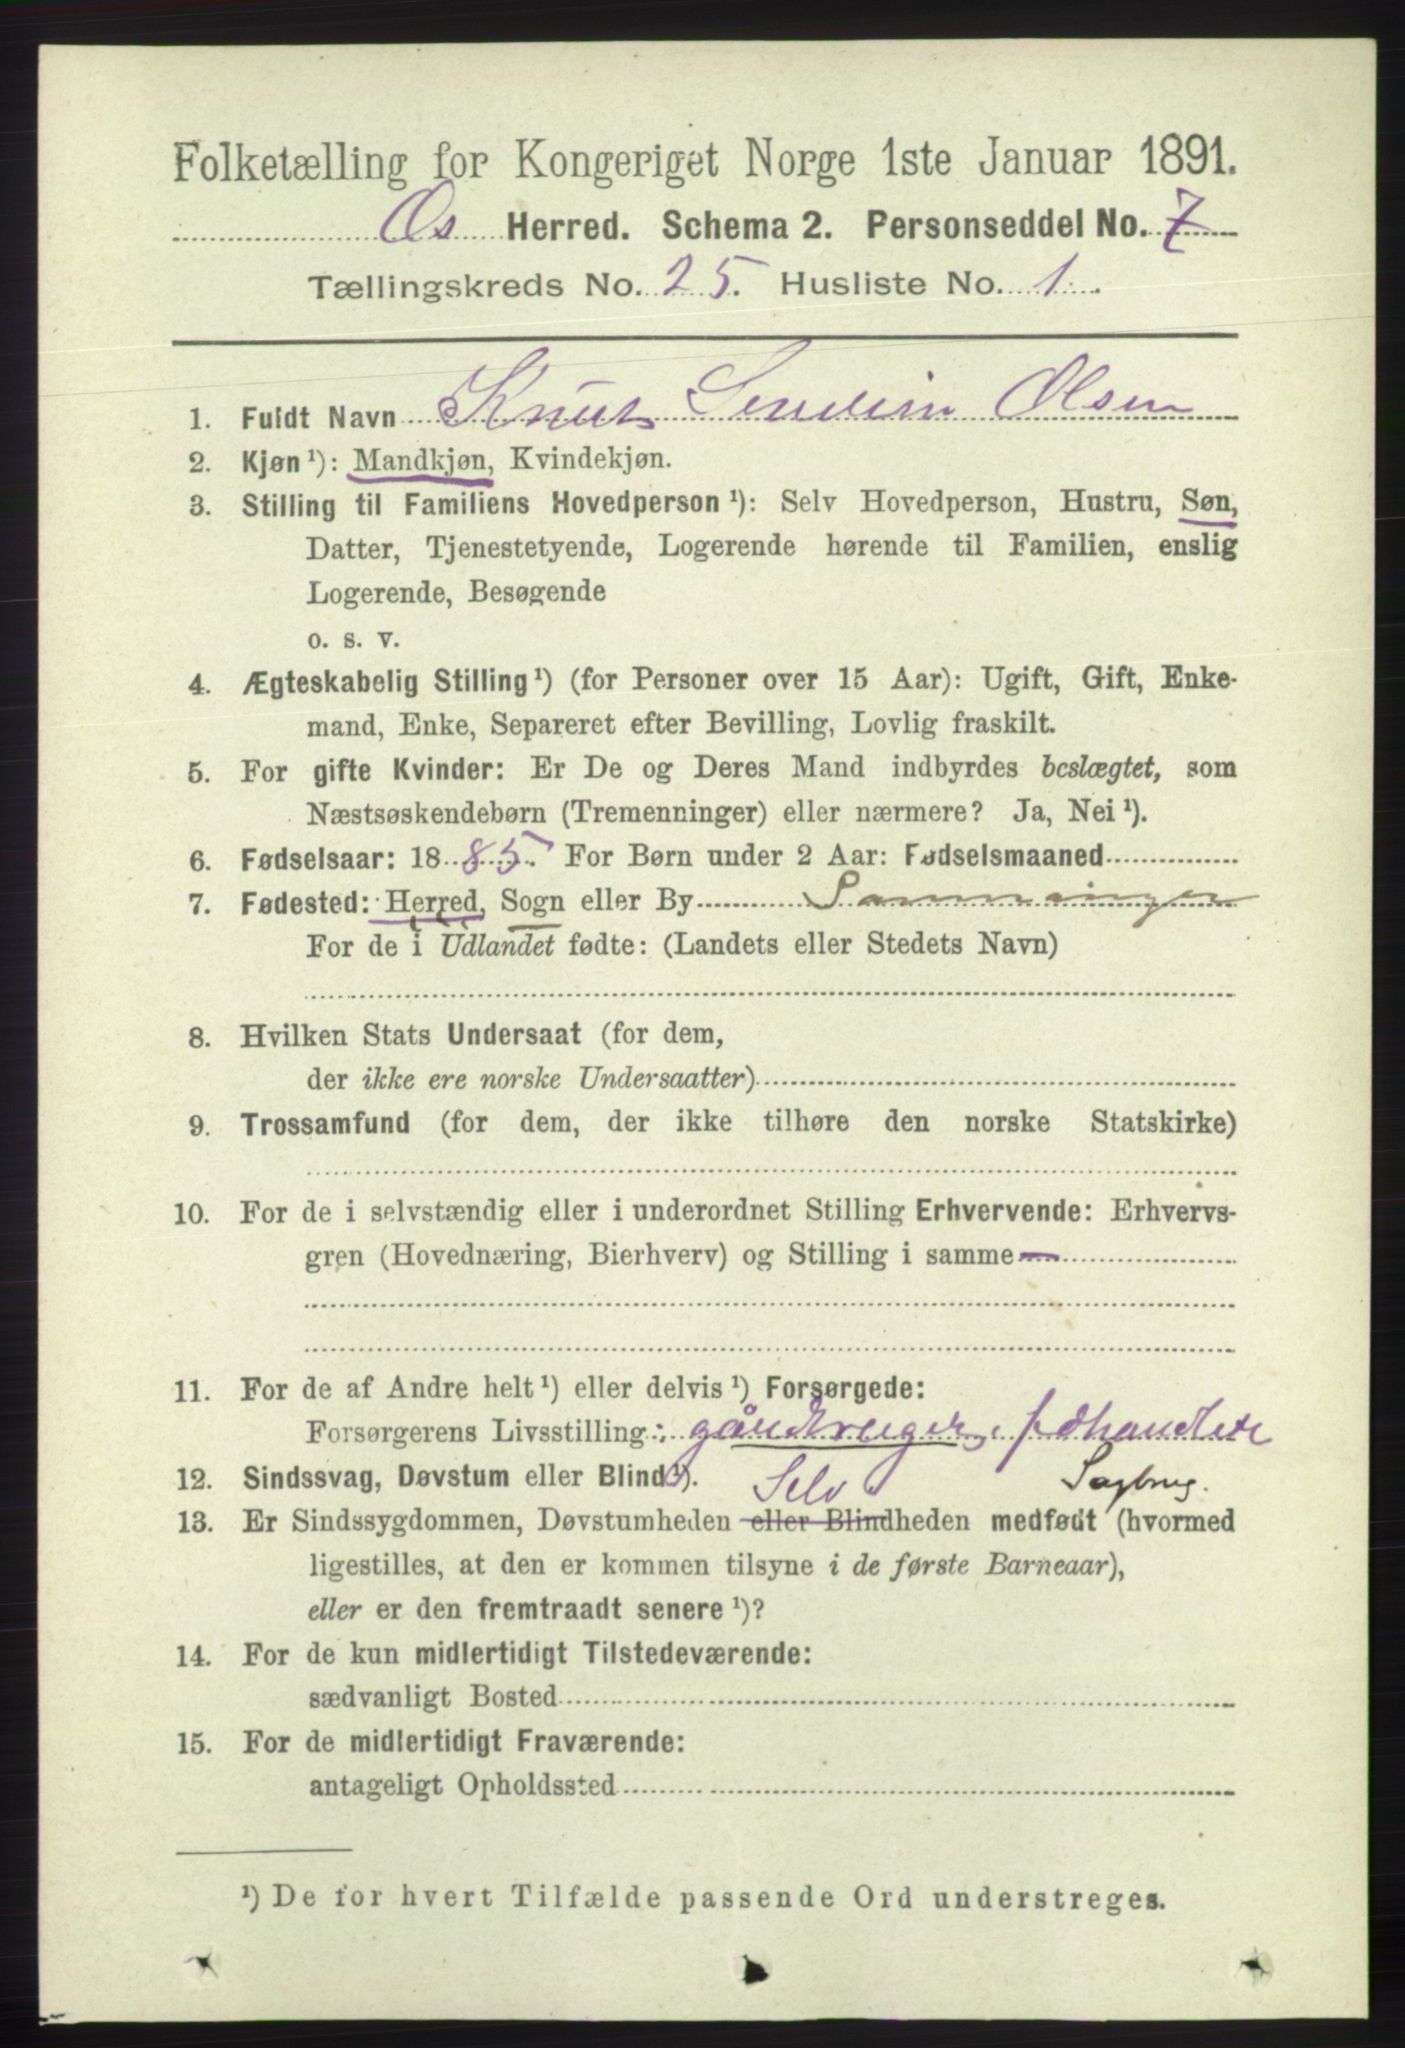 Folketælling for Kongeriget Norge 1ste Januar 1891.
Os Herred. Schema 2. Personseddel No. 7
Tællingskreds No. 25. Husliste No. 1.
1. Fuldt Navn Knut Olsen
2. Kjøn ¹): Mandkjøn, Kvindekjøn.
3. Stilling til Familiens Hovedperson ¹): Selv Hovedperson, Hustru, Søn,
Datter, Tjenestetyende, Logerende hørende til Familien, enslig
Logerende, Besøgende
o. s. v.
4. Ægteskabelig Stilling ¹) (for Personer over 15 Aar): Ugift, Gift, Enke-
mand, Enke, Separeret efter Bevilling, Lovlig fraskilt.
5. For gifte Kvinder: Er De og Deres Mand indbyrdes beslægtet, som
Næstsøskendebørn (Tremenninger) eller nærmere? Ja, Nei ¹).
6. Fødselsaar: 1885. For Børn under 2 Aar: Fødselsmaaned
7. Fødested: Herred, Sogn eller By
For de i Udlandet fødte: (Landets eller Stedets Navn)
8. Hvilken Stats Undersaat (for dem,
der ikke ere norske Undersaatter)
9. Trossamfund (for dem, der ikke tilhøre den norske Statskirke)
10. For de i selvstændig eller i underordnet Stilling Erhvervende: Erhvervs-
gren (Hovednæring, Bierhverv) og Stilling i samme —
11. For de af Andre helt ¹) eller delvis ¹) Forsørgede:
Forsørgerens Livsstilling:
12. Sindssvag, Døvstum eller Blind ¹). Selv Sagbrug.
13. Er Sindssygdommen, Døvstumheden eller Blindheden medfødt (hvormed
ligestilles, at den er kommen tilsyne i de første Barneaar),
eller er den fremtraadt senere ¹)?
14. For de kun midlertidigt Tilstedeværende:
sædvanligt Bosted
15. For de midlertidigt Fraværende:
antageligt Opholdssted
¹) De for hvert Tilfælde passende Ord understreges.